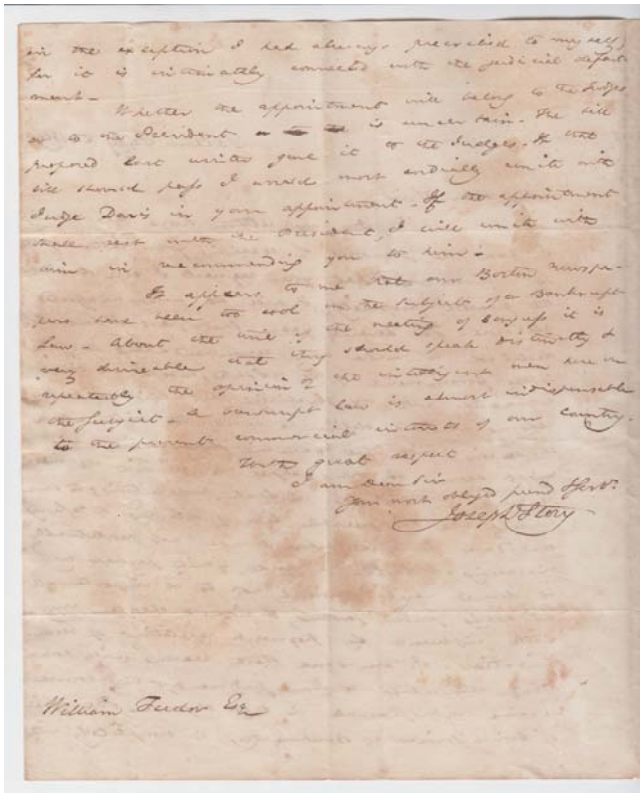 in the exception I had always prescribed to myself,
for it is intimately connected with the judicial depart
ment -
Whether the appointment will belong to the Judges
or to the President is uncertain. The bill
proposed last winter gave it to the Judges. If that
bill should pass I would most cordially unite with
Judge Davis in your appointment. If the appointment
shall rest with the President, I will unite with
him in recommending you to him.
It appears to me that our Boston newspa-
pers have been too cool on the subject of a Bankrupt
Law - About the time of the meeting of Congress it is
very desireable that they should speak distinctly &
repeatedly the opinion of the intelligent men here on
the subject. A bankrupt law is almost indispensable
to the present commercial interests of our Country.
With great respect
I am Dear Sir
Your most obliged friend & Servt.
Joseph Story
William Tudor Esq